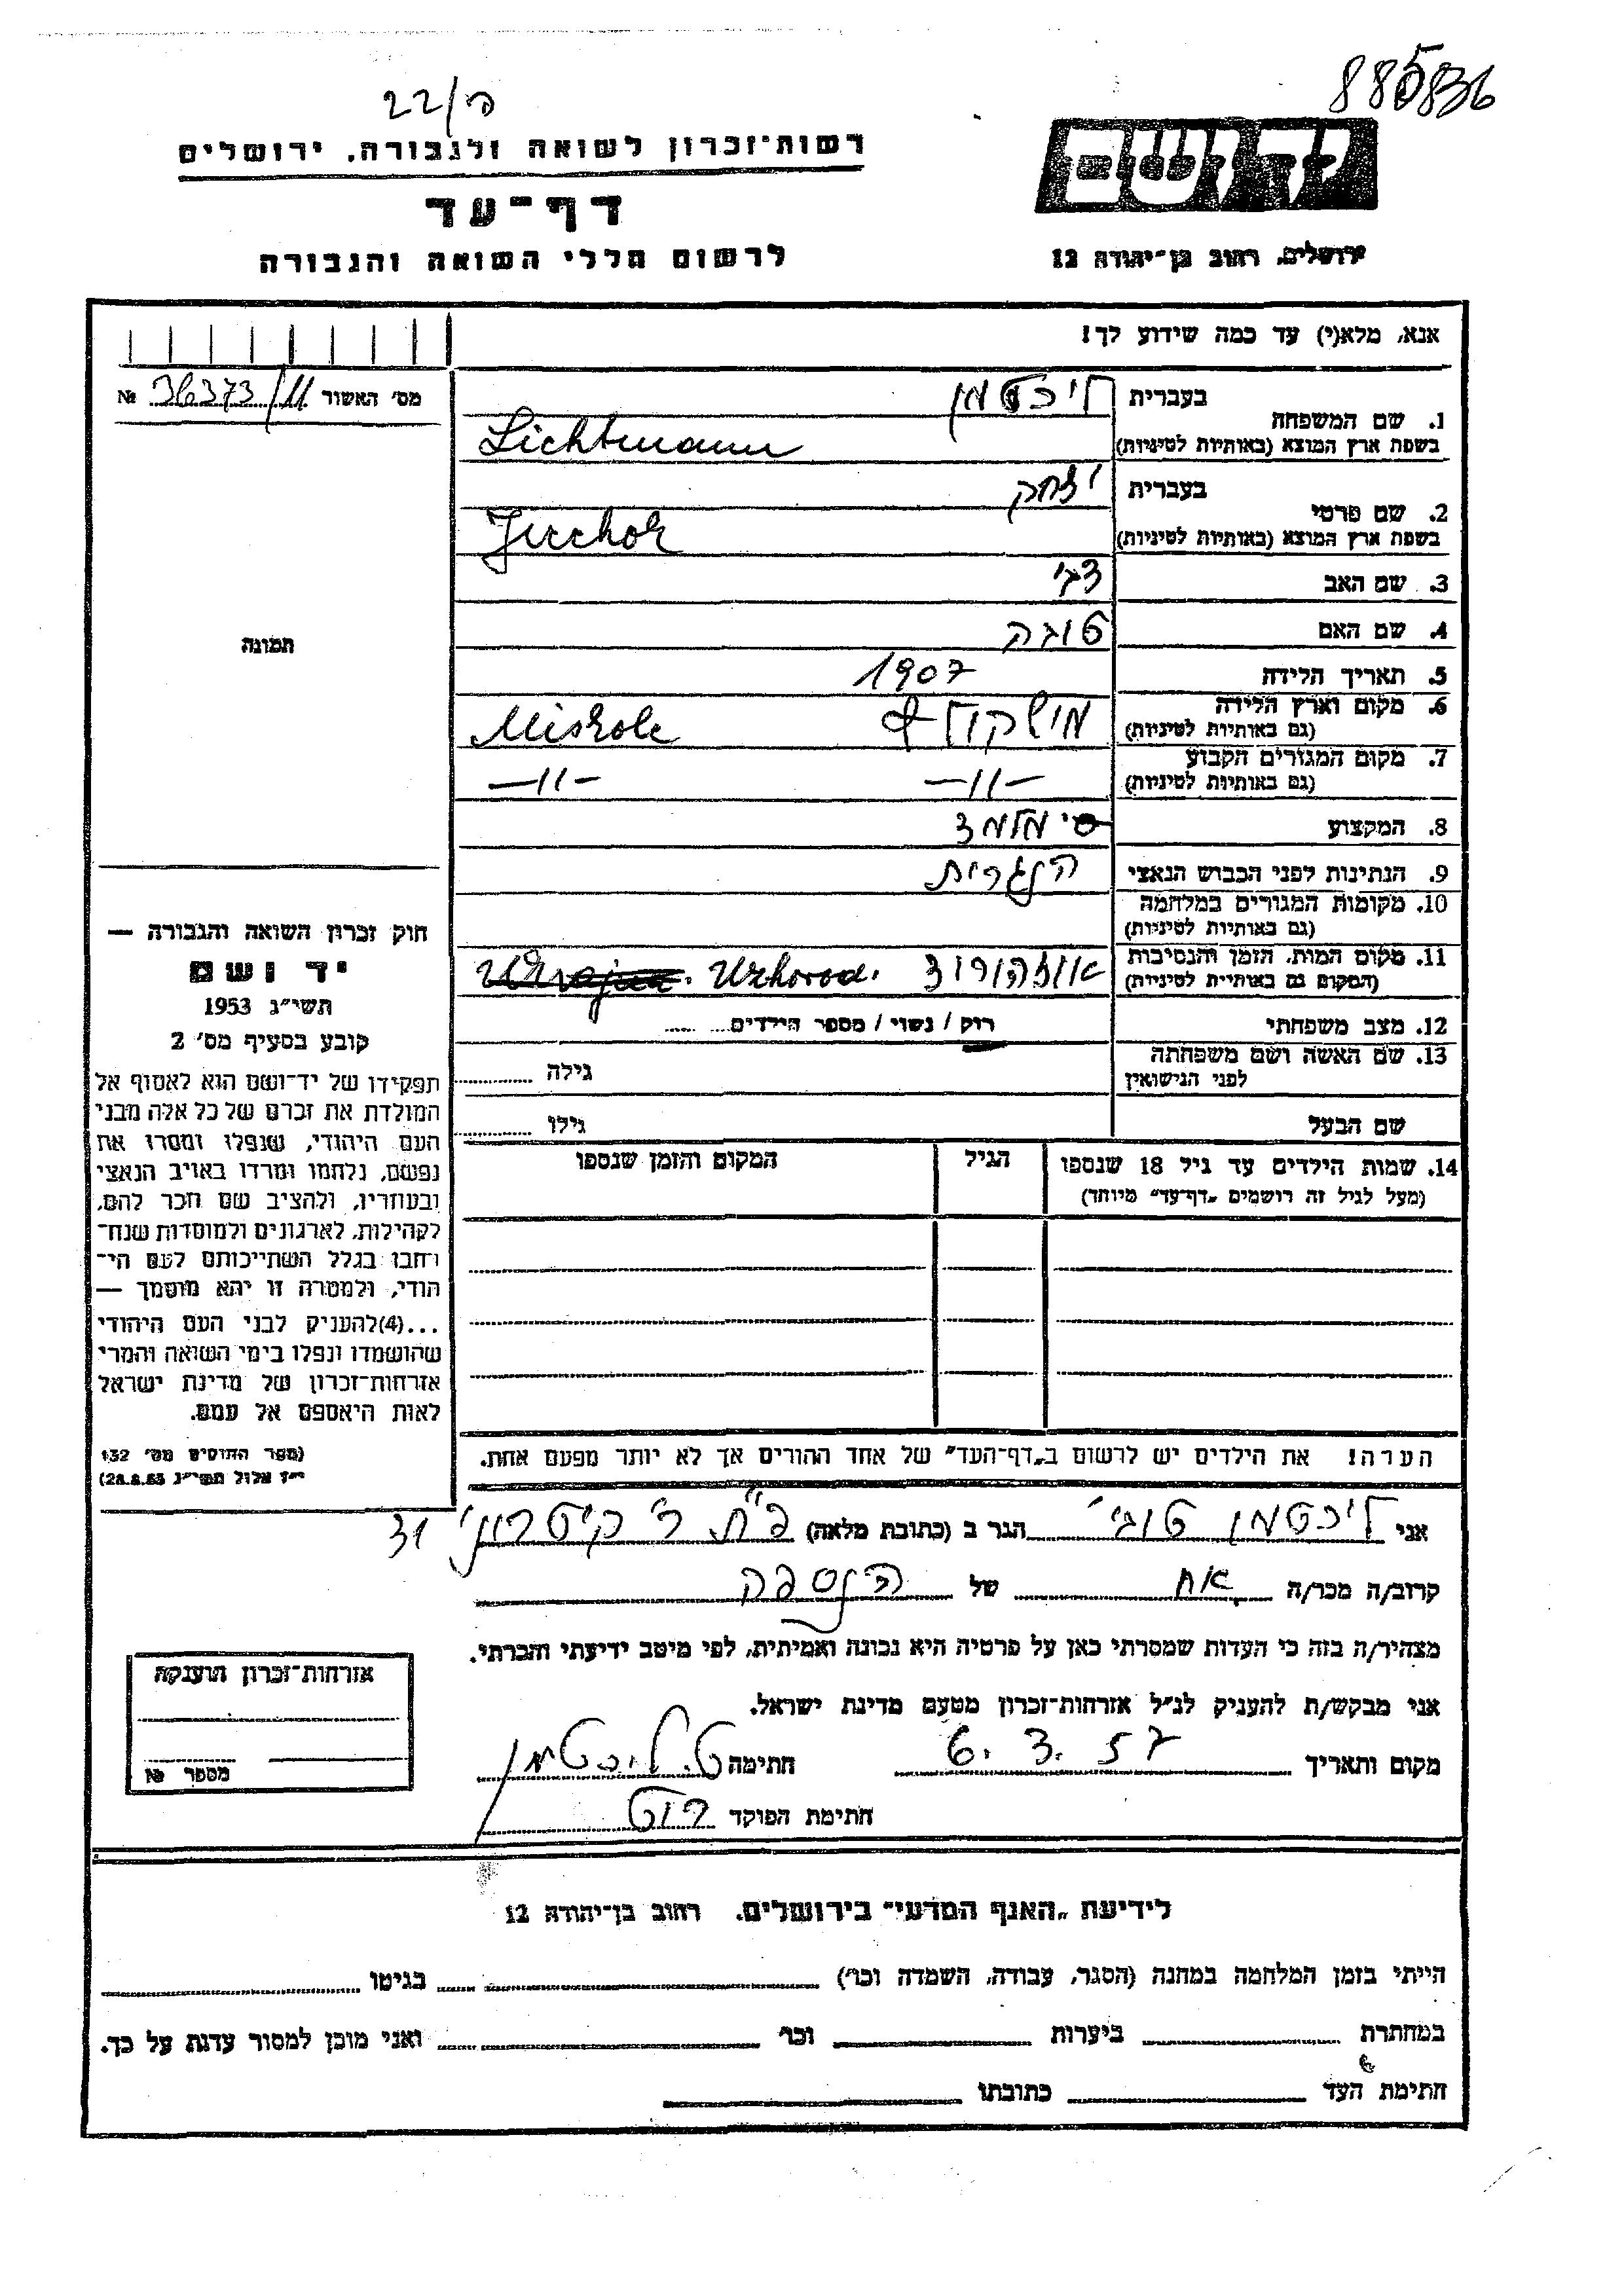 885836
22/ס
רשות־זכרון לשואה ולגבורה, ירושלים
דף־עד
לרשום חללי השואה והגבורה
יד ושם
ירושלים, רחוב בן־יהודה 12
אנא, מלא(י) עד כמה שידוע לך!
מס' האשור 36373/11 №
תמונה
1. שם המשפחה
בעברית ליכטמן
בשפת ארץ המוצא (באותיות לטיניות) Lichtmann
2. שם פרטי
בעברית יצחק
בשפת ארץ המוצא (באותיות לטיניות)
3. שם האב צבי
4. שם האם טובה
5. תאריך הלידה 1907
6. מקום וארץ הלידה
(גם באותיות לטיניות) Miskolc
7. מקום המגורים הקבוע
(גם באותיות לטיניות) —״— —״—
8. המקצוע
9. הנתינות לפני הכבוש הנאצי הונגרית
10. מקומות המגורים במלחמה
(גם באותיות לטיניות)
11. מקום המות, הזמן והנסיבות
(המקום גם באותיות לטיניות) אוזהורוד Uzhorod.
12. מצב משפחתי רוק / נשוי / מספר הילדים
13. שם האשה ושם משפחתה
לפני הנישואין גילה
שם הבעל גילו
14. שמות הילדים עד גיל 18 שנספו
(מעל לגיל זה רושמים „דף־עד" מיוחד)
הגיל
המקום והזמן שנספו
הערה! את הילדים יש לרשום ב„דף־העד" של אחד ההורים אך לא יותר מפעם אחת.
חוק זכרון השואה והגבורה —
יד ושם
תשי״ג 1953
קובע בסעיף מס' 2
תפקידו של יד־ושם הוא לאסוף אל
המולדת את זכרם של כל אלה מבני
העם היהודי, שנפלו ומסרו את
נפשם, נלחמו ומרדו באויב הנאצי
ובעוזריו, ולהציב שם וזכר להם,
לקהילות, לארגונים ולמוסדות שנח־
רחבו בגלל השתייכותם לעם הי־
הודי, ולמטרה זו יהא מוסמך —
...(4)להעניק לבני העם היהודי
שהושמדו ונפלו בימי השואה והמרי
אזרחות־זכרון של מדינת ישראל
לאות היאספם אל עמם.
(ספר החוקים מס' 132
י״ז אלול תשי״ג 28.8.53)
אני ליכטמן טובי' הגר ב (כתובת מלאה) פ״ת 31
קרוב/ה מכר/ה אח של הנספה
מצהיר/ה בזה כי העדות שמסרתי כאן על פרטיה היא נכונה ואמיתית, לפי מיטב ידיעתי והכרתי.
אני מבקש/ת להעניק לנ״ל אזרחות־זכרון מטעם מדינת ישראל.
מקום ותאריך 6. 3. 57 חתימה ט. ליכטמן
חתימת הפוקד
אזרחות־זכרון הוענקה
מספר №
לידיעת „האגף המדעי" בירושלים, רחוב בן־יהודה 12
הייתי בזמן המלחמה במחנה (הסגר, עבודה, השמדה וכו') בגיטו
במחתרת ביערות וכו' ואני מוכן למסור עדות על כך.
חתימת העד כתובתו